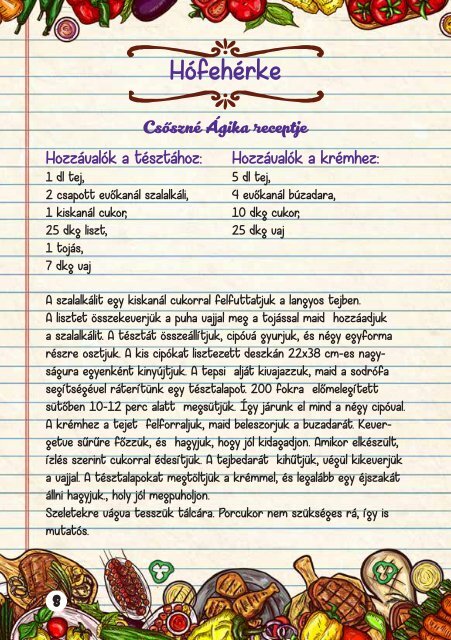 Hófehérke
Csőszné Ágika receptje
Hozzávalók a tésztához:
1 dl tej,
2 csapott evőkanál szalalkáli,
1 kiskanál cukor,
25 dkg liszt,
1 tojás,
7 dkg vaj
Hozzávalók a krémhez:
5 dl tej,
4 evőkanál búzadara,
10 dkg cukor,
25 dkg vaj
A szalalkálit egy kiskanál cukorral felfuttatjuk a langyos tejben.
A lisztet összekeverjük a puha vajjal meg a tojással maid hozzáadjuk
a szalalkálit. A tésztát összeállítjuk, cipóvá gyurjuk, és négy egyforma
részre osztjuk. A kis cipókat lisztezett deszkán 22x38 cm-es nagy-
ságura egyenként kinyújtjuk. A tepsi alját kivajazzuk, maid a sodrófa
segítségével ráterítünk egy tésztalapot. 200 fokra előmelegített
sütőben 10-12 perc alatt megsütjük. Így járunk el mind a négy cipóval.
A krémhez a tejet felforraljuk, maid beleszorjuk a buzadarát. Kever-
getve sűrűre főzzük, és hagyjuk, hogy jól kidagadjon. Amikor elkészült,
ízlés szerint cukorral édesítjük. A tejbedarát kihűtjük, végül kikeverjük
a vajjal. A tésztalapokat megtöltjük a krémmel, és legalább egy éjszakát
állni hagyjuk., holy jól megpuholjon.
Szeletekre vágva tesszük tálcára. Porcukor nem szükséges rá, így is
mutatós.
8